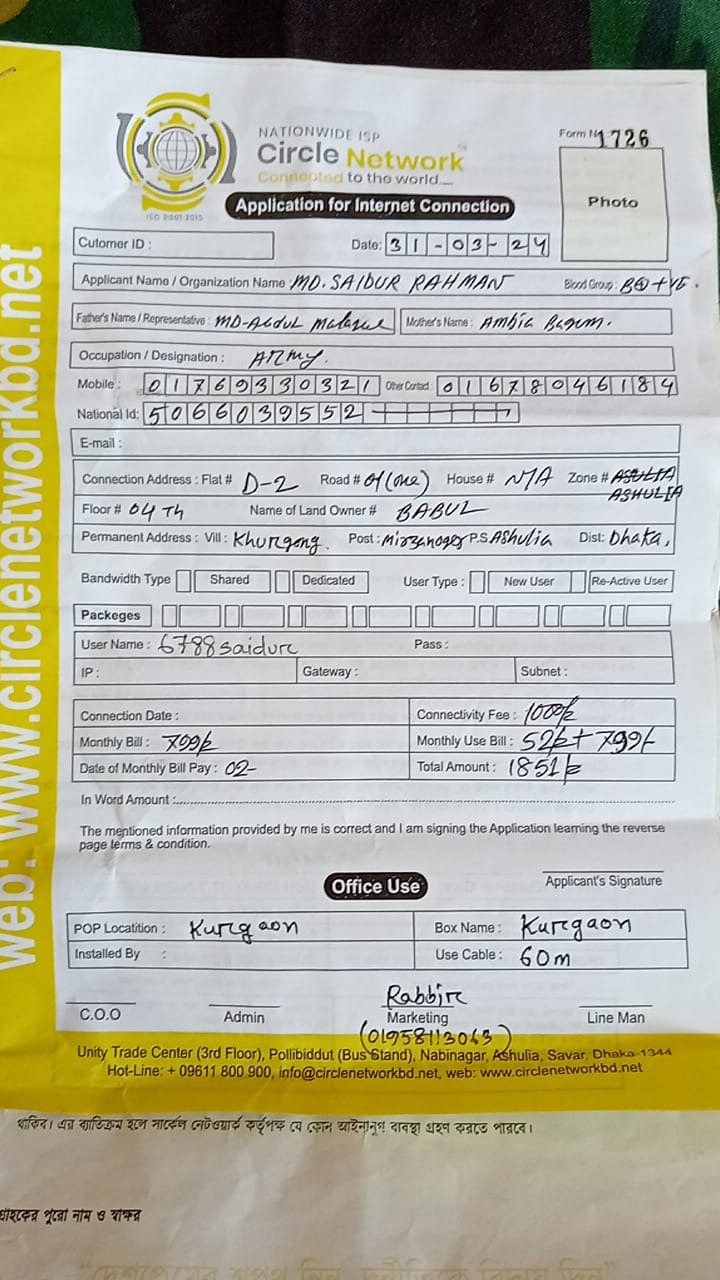 NATIONWIDE ISP
Circle Network
Connected to the world....
ISO 9001:2015
Form N 1726
Photo
Application for Internet Connection
Cutomer ID :
Date: 31-03-24
Applicant Name / Organization Name : MD. SAIDUR RAHMAN Blood Group : B+VE.
Father's Name / Representative : MD-Abdul Mother's Name : Ambia Begum.
Occupation / Designation : Army.
Mobile : 01769330321 Other Contact : 01678046184
National Id: 5066039552
E-mail :
Connection Address : Flat # D-2 Road # 01(one) House # N/A Zone # ASHULIA
Floor # 04 Th Name of Land Owner # BABUL
Permanent Address : Vill : Khurgong. Post : Mirzanager P.S Ashulia Dist: Dhaka,
Bandwidth Type Shared Dedicated User Type : New User Re-Active User
Packeges
User Name : 6788saidur Pass :
IP : Gateway : Subnet :
Connection Date : Connectivity Fee : 1000/=
Monthly Bill : 799/= Monthly Use Bill : 52/= + 799/-
Date of Monthly Bill Pay : 02- Total Amount : 1851/=
In Word Amount :
The mentioned information provided by me is correct and I am signing the Application learning the reverse
page terms & condition.
Applicant's Signature
Office Use
POP Locatition : Kurgaon Box Name : Kurgaon
Installed By : Use Cable : 60m
Rabbir
C.O.O Admin Marketing Line Man
(01958113063)
Unity Trade Center (3rd Floor), Pollibiddut (Bus Stand), Nabinagar, Ashulia, Savar, Dhaka-1344
Hot-Line: + 09611 800 900, info@circlenetworkbd.net, web: www.circlenetworkbd.net
web: www.circlenetworkbd.net
থাকিব। এর ব্যতিক্রম হলে সার্কেল নেটওয়ার্ক কর্তৃপক্ষ যে কোন আইনানুগ ব্যবস্থা গ্রহণ করতে পারবে।
গ্রাহকের পুরো নাম ও স্বাক্ষর